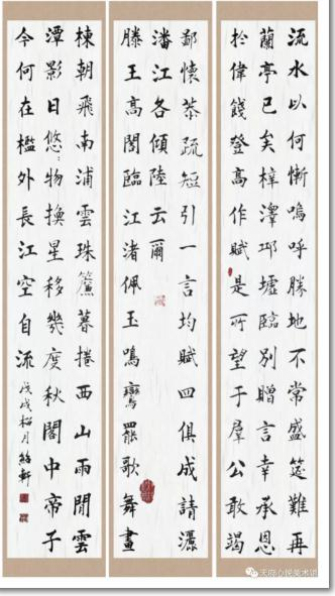 流水以何慚嗚呼勝地不常盛筵難再
蘭亭已矣梓澤邱墟臨別贈言幸承恩
扵偉餞登高作賦是所望于羣公敢竭
鄙懷恭疏短引一言均賦四俱成請灑
潘江各傾陸云爾
滕王高閣臨江渚佩玉鳴鸞罷歌舞畫
棟朝飛南浦雲珠簾暮捲西山雨閒雲
潭影日悠〻物換星移幾度秋閣中帝子
今何在檻外長江空自流
戊戌 月 軒